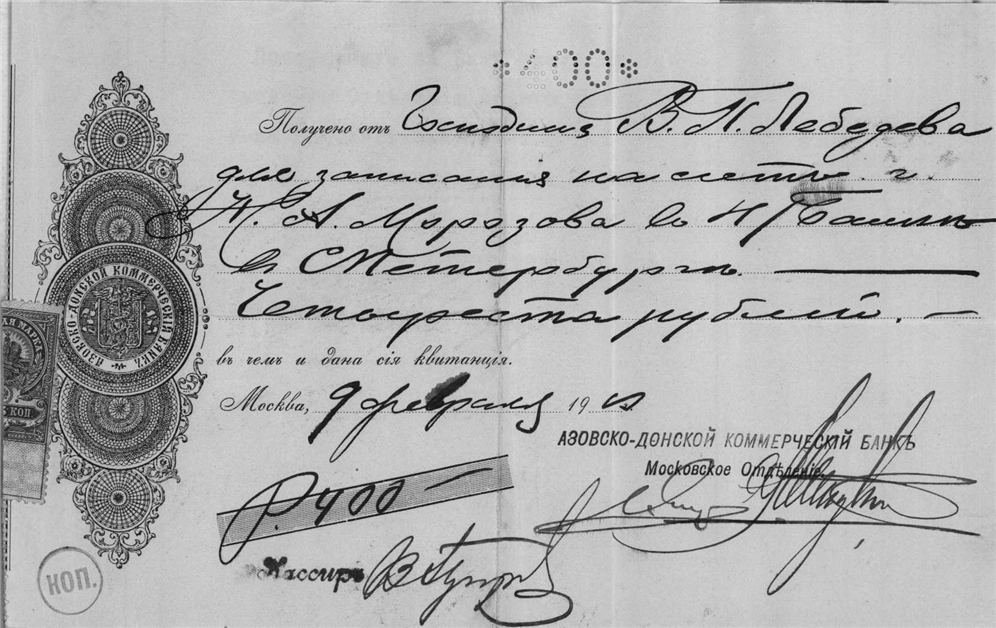 *400*
Получено отъ Господина В. П. Лебедева
для записанія на счетъ г.
Н. А. Морозова въ н/Банкъ
въ С Петербургъ
Четыреста рублей. —
въ чемъ и дана сія квитанція.
Москва, 9 февраля 19
АЗОВСКО-ДОНСКОЙ КОММЕРЧЕСКІЙ БАНКЪ
Московское Отдѣленіе
Р. 400 —
Кассиръ
АЗОВСКО-ДОНСКОЙ КОММЕРЧЕСКІЙ БАНКЪ
КОП
КОП.